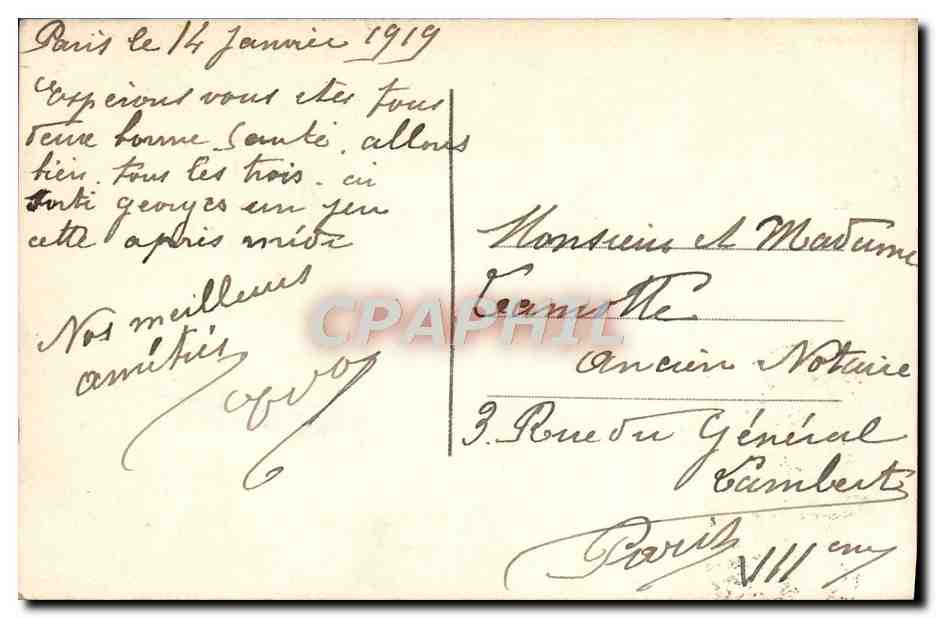 Paris le 14 Janvier 1919
Esperons vous etes tous
deux bonne Santé. allons
bien. tous les trois.
sorti georges un peu
cette apris midi
Nos meilleurs
amitiés
CPAPHIL
Monsieur et Madame
Ancien Notaire
3. Rue du Général
Lambert
Paris VIIeme